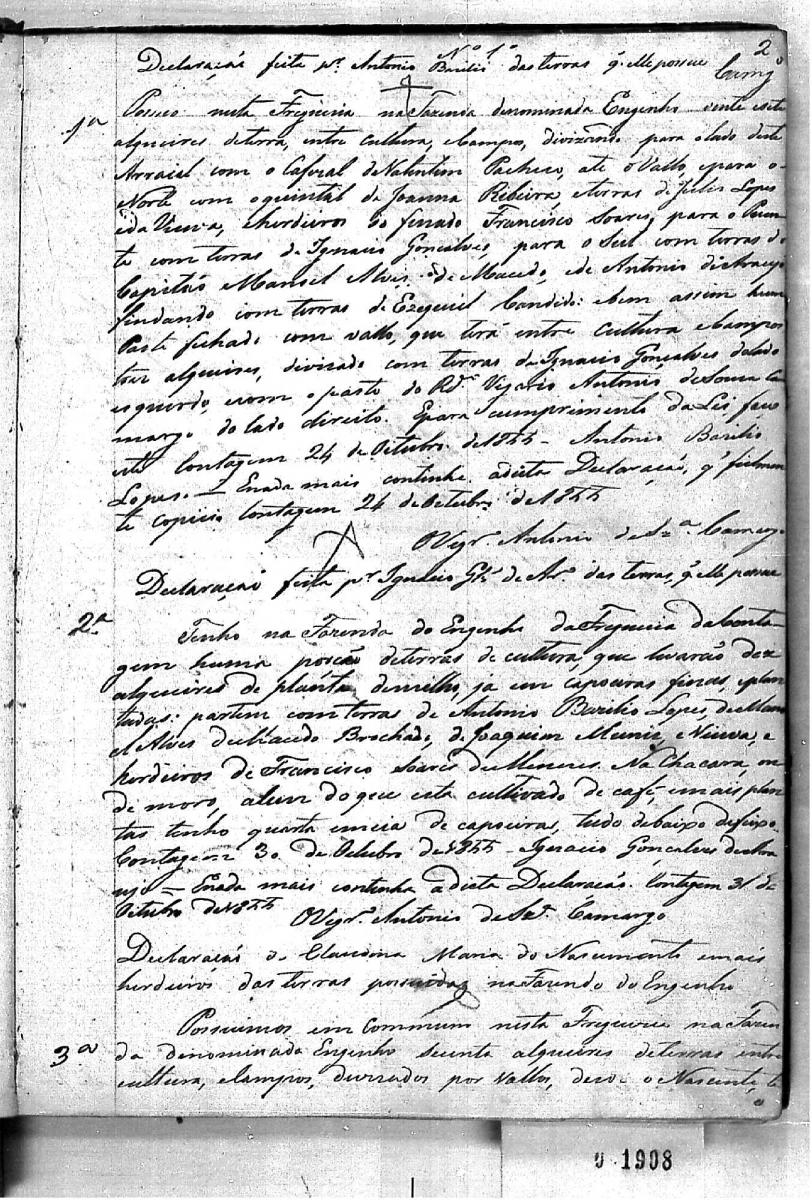 2
Camgo
Nº 1º
Declaração feita pr. Antonio Bazilio das terras q. elle possue
1ª
Possuo nesta Freguezia na Fazenda denominada Engenho vente esete
alqueires deterra, entre cultura, eCampos, divizando para olado deste
Arraial com o Cafezal de Valentim Pacheco, até o Vallo, epara o
Norte com oquintal da Joanna Ribeira, eterras de Felis Lopes
eda Viuva, eherdeiros do finado Francisco Soares, para o Poen
te com terras de Ignacio Gonçalves, para o Sul com terras do
Capitão Manoel Alves de Macedo, ede Antonio de Araujo
findando com terras de Ezequiel Candido: ebem assim hum
Pasto fechado com vallo, que terá entre cultura eCampos
trez alqueires, divizado com terras de Ignacio Gonçalves dolado
esquerdo, ecom opasto do Rdo. Vigario Antonio de Souza Ca
margo do lado direito. Epara cumprimento da Lei faço
esta Contagem 24 de Outubro de 1855 - Antonio Bazilio
Lopes. = Enada mais continha adicta Declaração, q' fielmen
te copiei. Contagem 24 de Outubro de 1855
OVigr. Antonio de Sza. Camargo
Declaração feita pr. Ignacio Glz. de Ar. das terras, q. elle possue
2ª
Tenho na Fazenda do Engenho da Freguezia da Conta
gem huma porção deterras de cultura, que levarão dez
alqueires de planta demilho, ja em capoeiras finas, eplan
tadas: partem com terras de Antonio Bazilio Lopes, de Mano
el Alves de Macedo Brochado, de Joaquim Muniz, e Viuva, e
herdeiros de Francisco Soares de Menezes. Na Chacara, on
de moro, alem do que está cultivado de café, emais plan
tas tenho quarta emeia de capoeira, tudo debaixo defeixo.
Contagem 30 de Outubro de 1855 - Ignacio Gonçalves de Ara
ujo = Enada mais continha adicta Declaração. Contagem 31 de
Outubro de 1855 OVigr. Antonio de Sza. Camargo
Declaração de Claudina Maria do Nascimento emais
herdeiros das terras possuidas na Fazenda do Engenho
3ª
Possuimos em Commum nesta Freguezia na Fazen
da denominada Engenho secenta alqueires deterras entre
cultura, eCampos, divizados por Vallos, o Nascente,
0 1908